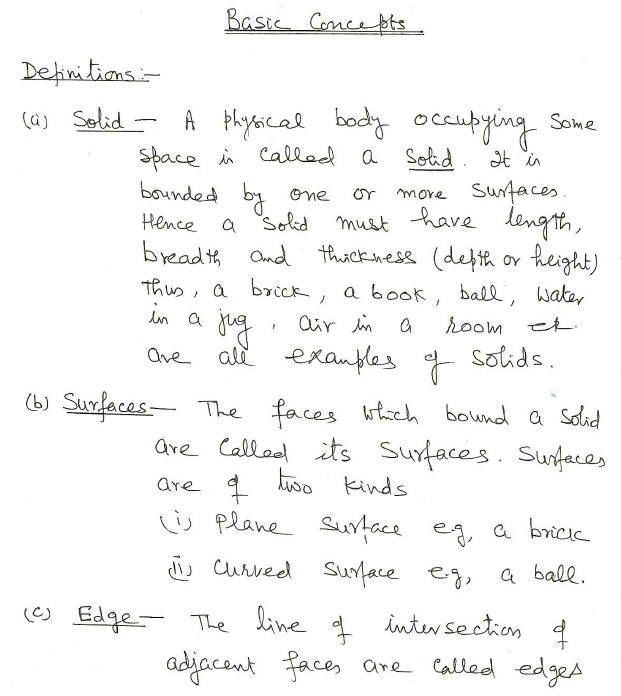 Basic Concepts.
Definitions:-
(a) Solid - A physical body occupying some
space is called a solid. It is
bounded by one or more surfaces.
Hence a solid must have length,
breadth and thickness (depth or height)
Thus, a brick, a book, ball, water
in a jug, air in a room etc.
are all examples of solids.
(b) Surfaces - The faces which bound a solid
are called its surfaces. Surfaces
are of two kinds
(i) Plane surface e.g, a brick
(ii) Curved surface e.g, a ball.
(c) Edge - The line of intersection of
adjacent faces are called edges